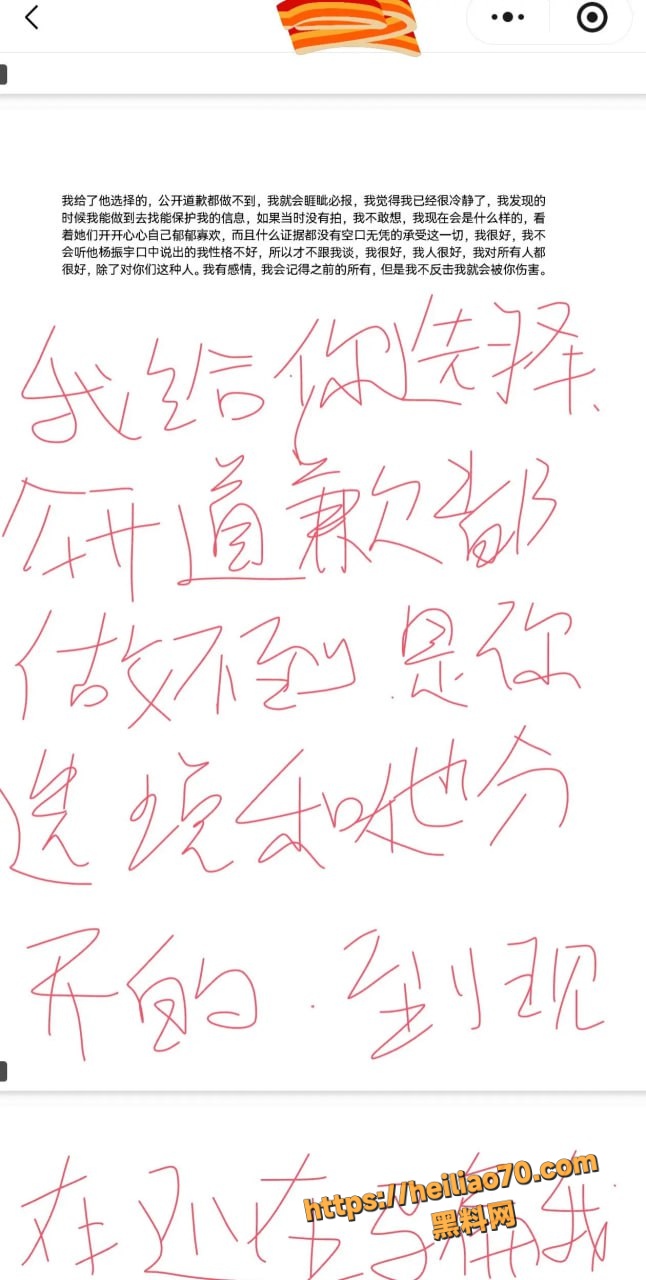 我给了他选择的，公开道歉都做不到，我就会睚眦必报，我觉得我已经很冷静了，我发现的
时候我能做到去找能保护我的信息，如果当时没有拍，我不敢想，我现在会是什么样的，看
着她们开开心心自己郁郁寡欢，而且什么证据都没有空口无凭的承受这一切，我很好，我不
会听他杨振宇口中说出的我性格不好，所以才不跟我谈，我很好，我人很好，我对所有人都
很好，除了对你们这种人。我有感情，我会记得之前的所有，但是我不反击我就会被你伤害。
我给你选择、
公开道歉都
做不到 是你
先说和他分
开的．到现
在还在
https://heiliao70.com
黑料网
我